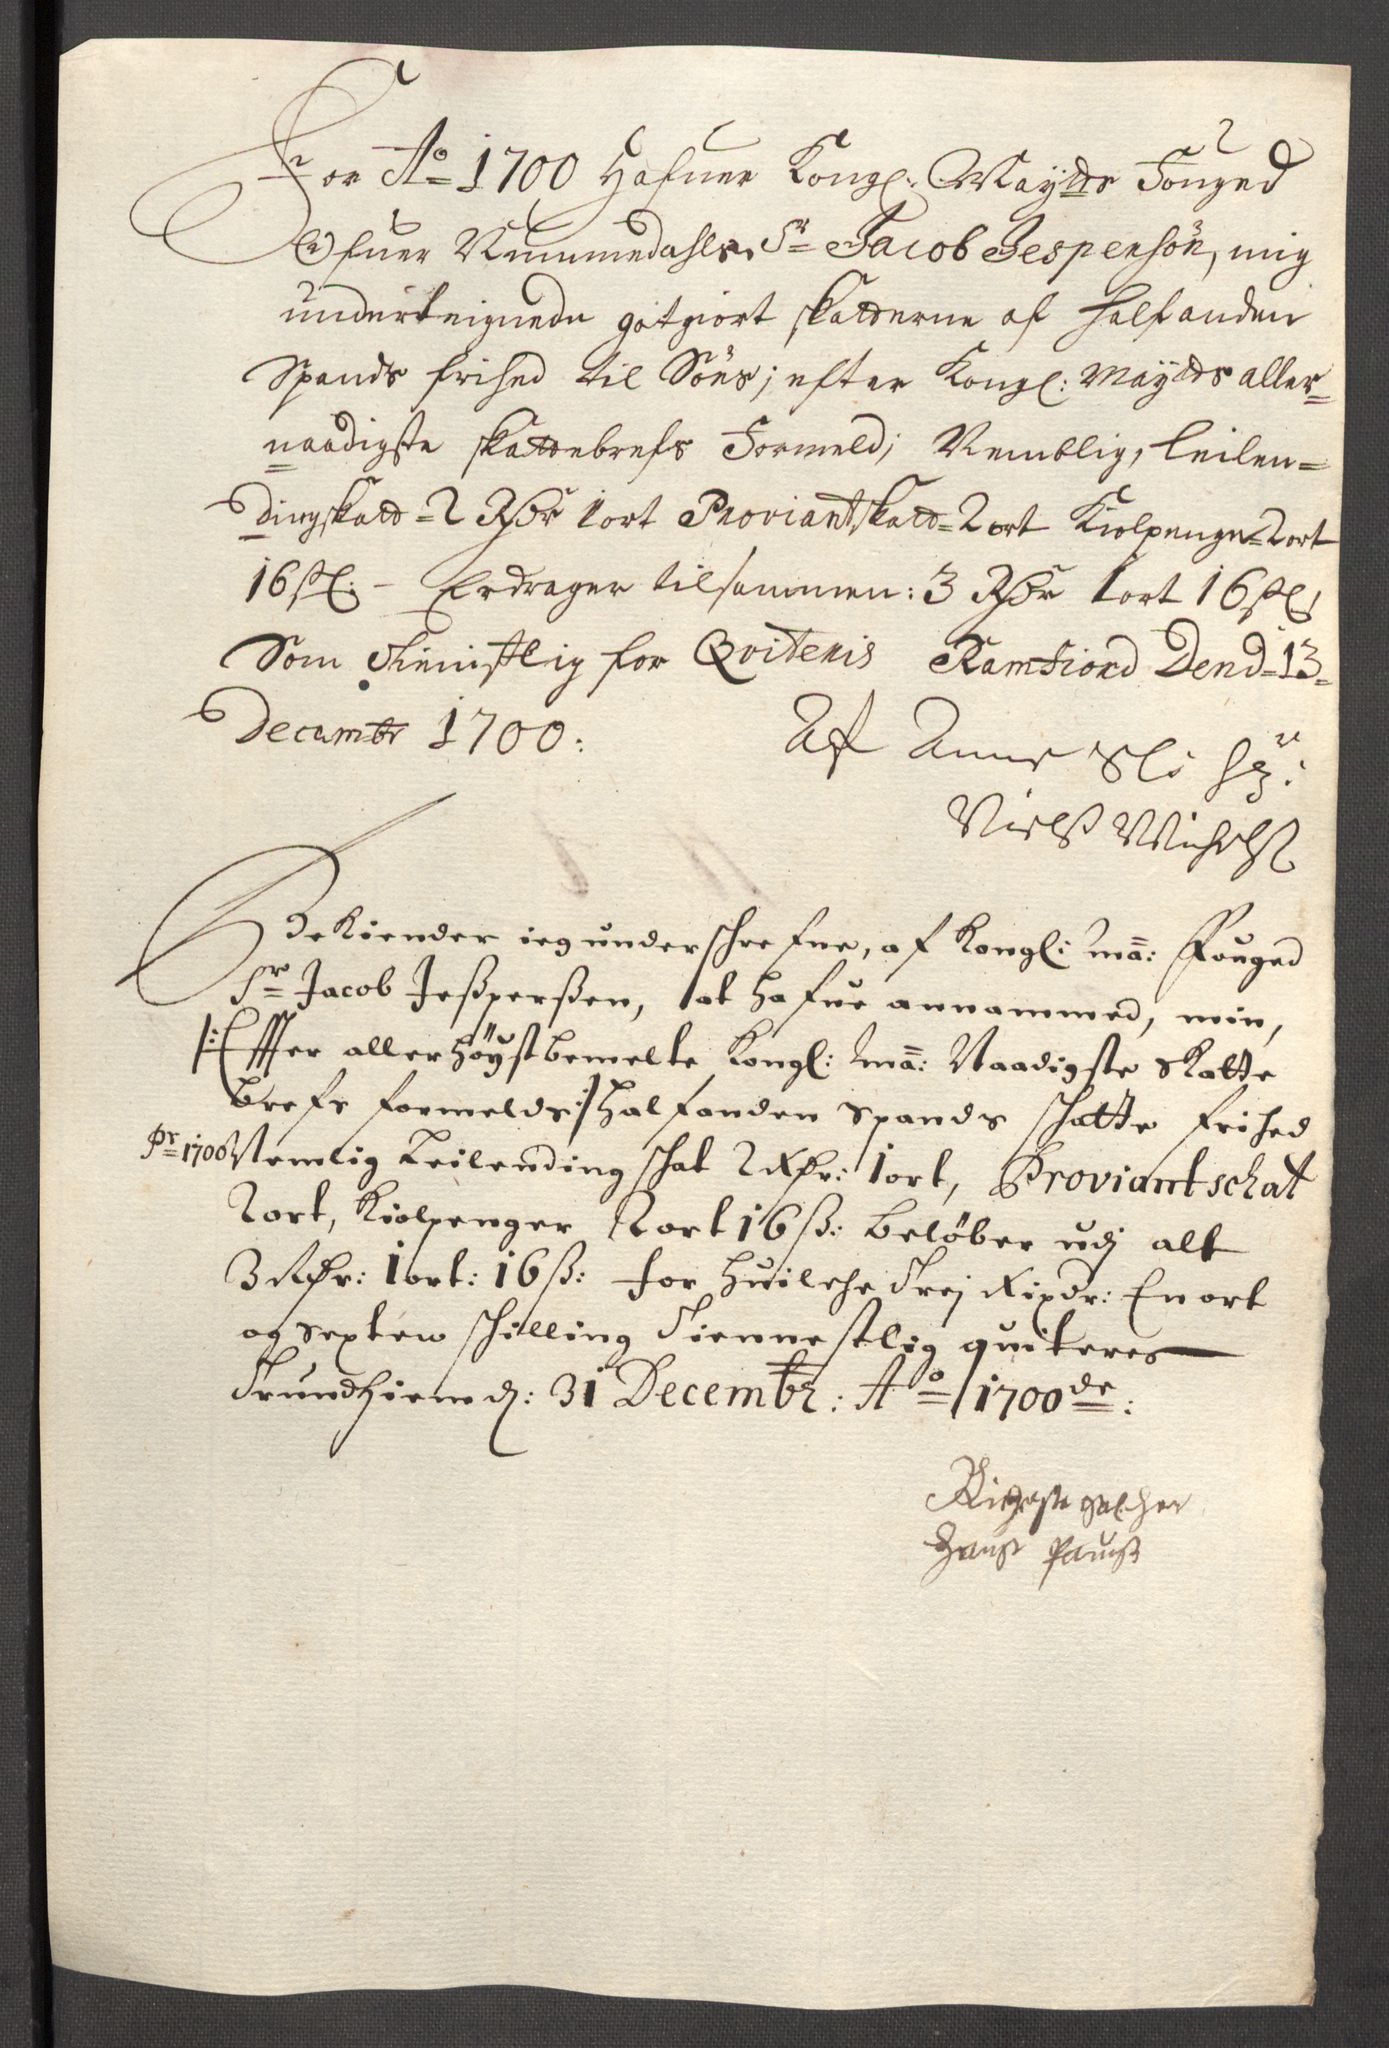 For Ao 1700 Hafuer Kongl: Maytts Fouged
Ofuer Nummedahls Sr Jacob Jespersön, mig
underteignede gotgiort skatterne af halfanden
Spands frihed til Söes; efter Kongl: Maytts aller=
naadigste skattebrefs Formeld; Nemblig, Leilen=
dingskatt = 2 Rdr 1 ort Proviantskatt = 2 ort Kiolpenge = 2 ort
16 sk: – Erdrager tilsammen: 3 Rdr 1 ort 16 sk
Som thienistlig for Qviteris Ramfiord Dend = 13 =
Decembr 1700:
Af Anne Sl: Hr:
Nielß
Bekiender ieg underschrefne, af Kongl: Ma: Fouged
Sr Jacob Jeßperßen, at hafue annammed, min,
/: Effter allerhöystbemelte Kongl: Ma: Naadigste Skatte
brefs formelds :/ halfanden Spands schatte frihed
Pr 1700 Nemlig Leilending schat 2 Rdr: 1 ort, Proviantschat
2 ort, Kiolpenger 2 ort 16 ß: belöber udj alt
3 Rdr: 1 ort: 16 ß: for huilche Trej Rixdr: En ort
og Sexten schilling Tiennestlig quiteres
Trundhiem d: 31 Decembr: Ao 1700de:
Hanß Pauß